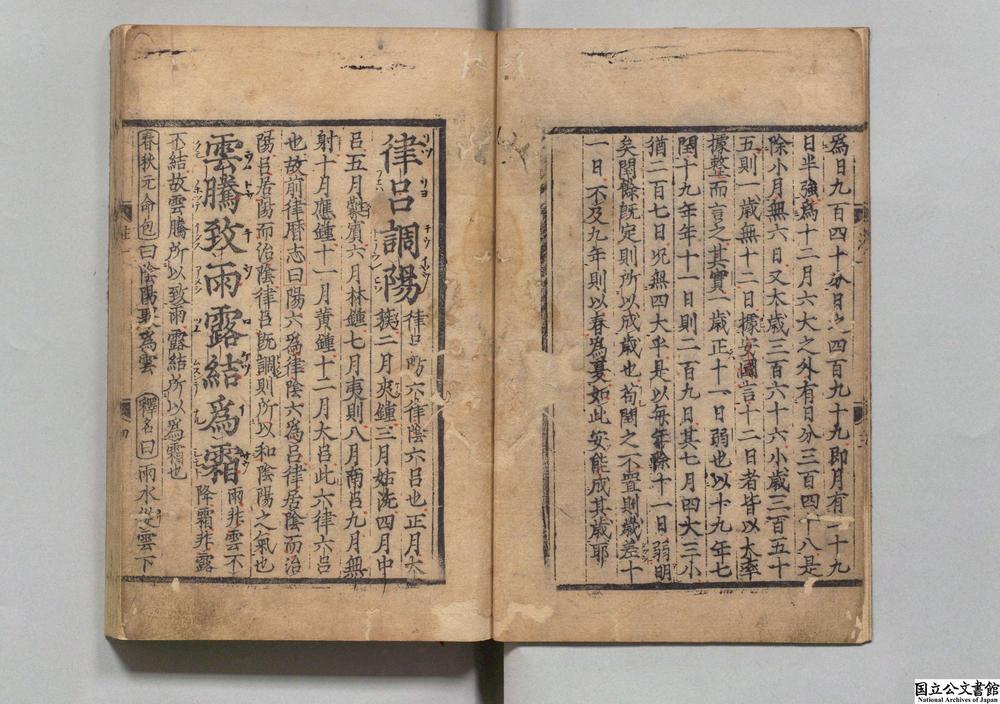 爲日九百四十分日之四百九十九即月有二十九
日半強爲十二月六大之外有日分三百四十八是
除小月無六日又大歲三百六十六小歲三百五十
五則一歲無十二日據安國言十二日者皆以大率
據整而言之其實一歲正十一日弱也以十九年七
閏十九年年十一日則二百九日其七月四大三小
猶二百七日况無四大乎是以每年除十一日弱明
矣閏餘既定則所以成歲也苟閏之不置則歲差十
一日不及九年則以春爲夏如此安能成其歲耶
律呂調陽 律呂 六律陰六呂也正月大
簇二月夾鍾三月姑洗四月中
呂五月蕤賓六月林鍾七月夷則八月南呂九月無
射十月應鍾十一月黄鍾十二月大呂此六律六呂
也故前律暦志曰陽六爲律陰六爲呂律居陰而治
陽呂居陽而治陰律呂既調則所以和陰陽之氣也
雲騰致雨露結爲霜 雨非雲不
降霜非露
不結故雲騰所以致雨露結所以爲霜也
春秋元命包曰陰陽聚爲雲 釋名曰雨水從雲下
國立公文書館
National Archives of Japan